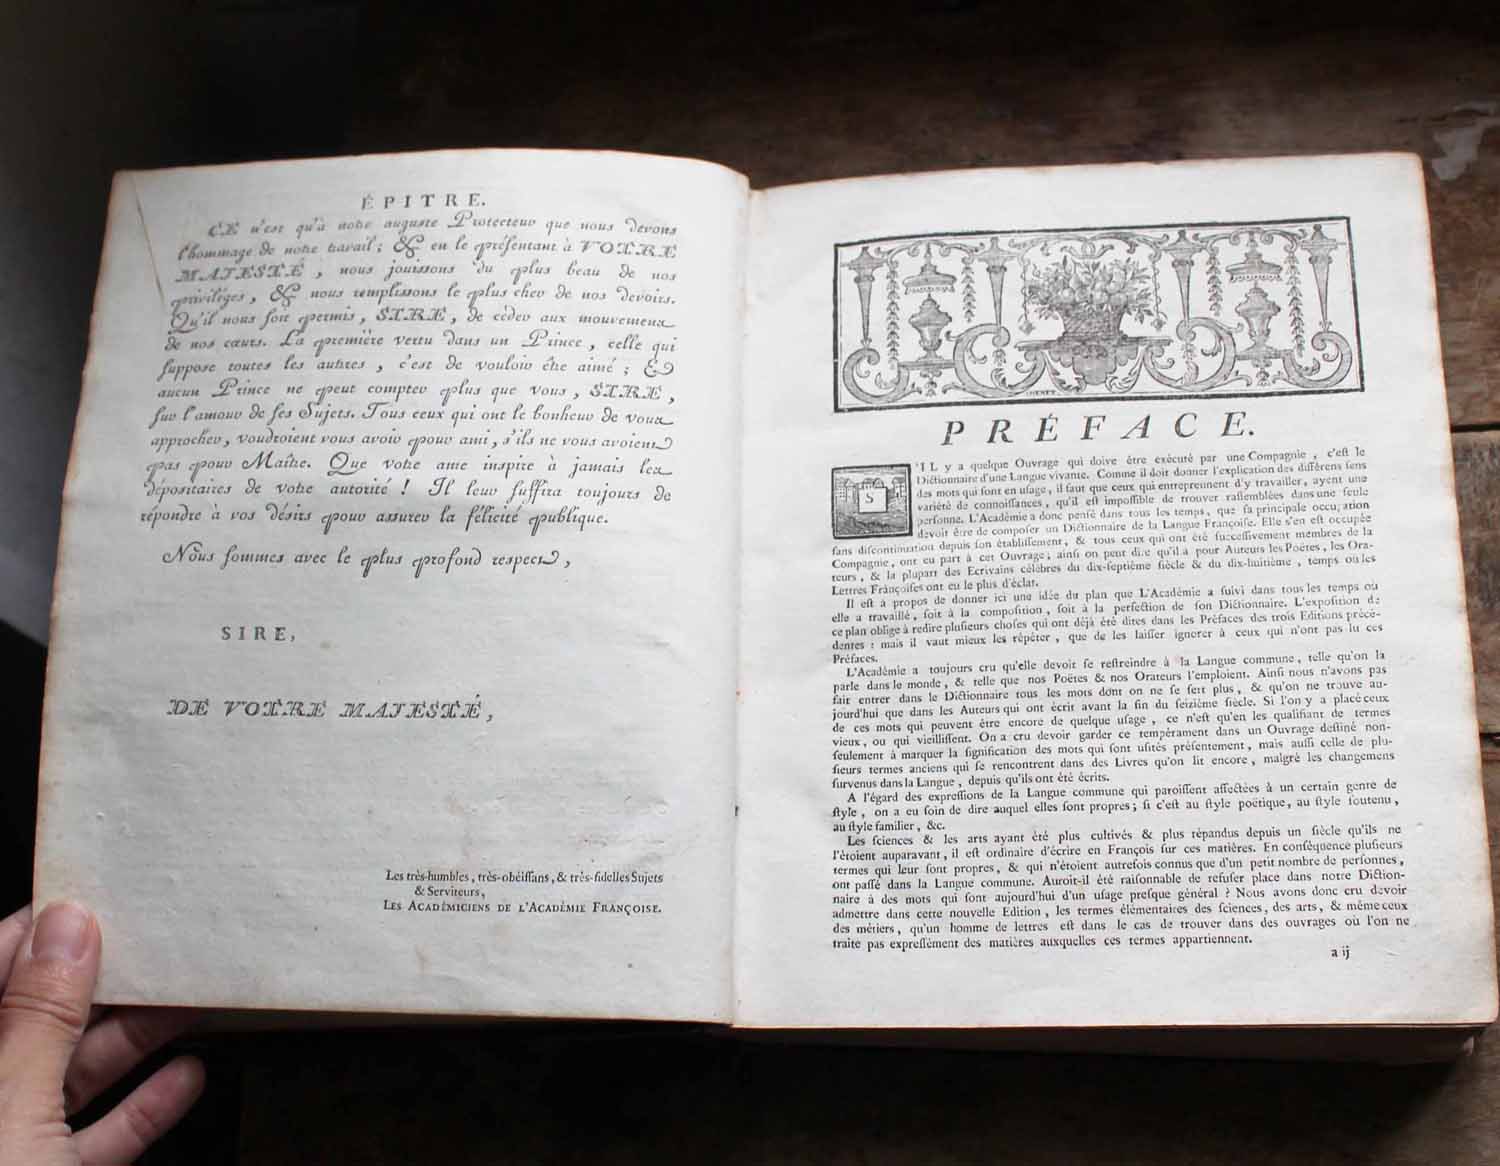 ÉPITRE.
CE n'est qu'à notre auguste Protecteur que nous devons
l'hommage de notre travail ; & en le préſentant à VOTRE
MAJESTÉ , nous jouiſſons du plus beau de nos
privilèges , & nous rempliſſons le plus cher de nos devoirs.
Qu'il nous ſoit permis , SIRE , de céder aux mouvemens
de nos cœurs. La première vertu dans un Prince , celle qui
ſuppoſe toutes les autres , c'eſt de vouloir être aimé ; &
aucun Prince ne peut compter plus que vous , SIRE ,
ſur l'amour de ſes Sujets. Tous ceux qui ont le bonheur de vous
approcher , voudroient vous avoir pour ami , s'ils ne vous avoient
pas pour Maître. Que votre ame inſpire à jamais les
dépoſitaires de votre autorité ! Il leur ſuffira toujours de
répondre à vos déſirs pour aſſurer la félicité publique.
Nous ſommes avec le plus profond reſpect ,
SIRE,
DE VOTRE MAJESTÉ ,
Les très-humbles , très-obéiſſans , & très-fidelles Sujets
& Serviteurs ,
LES ACADÉMICIENS DE L'ACADÉMIE FRANÇOISE.
PRÉFACE.
S'IL y a quelque Ouvrage qui doive être exécuté par une Compagnie , c'eſt le
Dictionnaire d'une Langue vivante. Comme il doit donner l'explication des différens ſens
des mots qui ſont en uſage , il faut que ceux qui entreprennent d'y travailler , ayent une
variété de connoiſſances , qu'il eſt impoſſible de trouver raſſemblées dans une ſeule
perſonne. L'Académie a donc penſé dans tous les temps , que ſa principale occupation
devoit être de compoſer un Dictionnaire de la Langue Françoiſe. Elle s'en eſt occupée
ſans diſcontinuation depuis ſon établiſſement , & tous ceux qui ont été ſucceſſivement membres de la
Compagnie , ont eu part à cet Ouvrage ; ainſi on peut dire qu'il a pour Auteurs les Poëtes , les Ora-
teurs , & la plupart des Ecrivains célèbres du dix-ſeptième ſiècle & du dix-huitième , temps où les
Lettres Françoiſes ont eu le plus d'éclat.
Il eſt à propos de donner ici une idée du plan que L'Académie a ſuivi dans tous les temps où
elle a travaillé , ſoit à la compoſition , ſoit à la perfection de ſon Dictionnaire. L'expoſition de
ce plan oblige à redire pluſieurs choſes qui ont déjà été dites dans les Préfaces des trois Editions précé-
dentes : mais il vaut mieux les répéter , que de les laiſſer ignorer à ceux qui n'ont pas lu ces
Préfaces.
L'Académie a toujours cru qu'elle devoit ſe reſtreindre à la Langue commune , telle qu'on la
parle dans le monde , & telle que nos Poëtes & nos Orateurs l'emploient. Ainſi nous n'avons pas
fait entrer dans le Dictionnaire tous les mots dont on ne ſe ſert plus , & qu'on ne trouve au-
jourd'hui que dans les Auteurs qui ont écrit avant la fin du ſeizième ſiècle. Si l'on y a placé ceux
de ces mots qui peuvent être encore de quelque uſage , ce n'eſt qu'en les qualifiant de termes
vieux , ou qui vieilliſſent. On a cru devoir garder ce tempérament dans un Ouvrage deſtiné non-
ſeulement à marquer la ſignification des mots qui ſont uſités préſentement , mais auſſi celle de plu-
ſieurs termes anciens qui ſe rencontrent dans des Livres qu'on lit encore , malgré les changemens
ſurvenus dans la Langue , depuis qu'ils ont été écrits.
A l'égard des expreſſions de la Langue commune qui paroiſſent affectées à un certain genre de
ſtyle , on a eu ſoin de dire auquel elles ſont propres ; ſi c'eſt au ſtyle poëtique , au ſtyle ſoutenu ,
au ſtyle familier , &c.
Les ſciences & les arts ayant été plus cultivés & plus répandus depuis un ſiècle qu'ils ne
l'étoient auparavant , il eſt ordinaire d'écrire en François ſur ces matières. En conſéquence pluſieurs
termes qui leur ſont propres , & qui n'étoient autrefois connus que d'un petit nombre de perſonnes ,
ont paſſé dans la Langue commune. Auroit-il été raiſonnable de refuſer place dans notre Diction-
naire à des mots qui ſont aujourd'hui d'un uſage preſque général ? Nous avons donc cru devoir
admettre dans cette nouvelle Edition , les termes élémentaires des ſciences , des arts , & même ceux
des métiers , qu'un homme de lettres eſt dans le cas de trouver dans des ouvrages où l'on ne
traite pas expreſſément des matières auxquelles ces termes appartiennent.
a ij